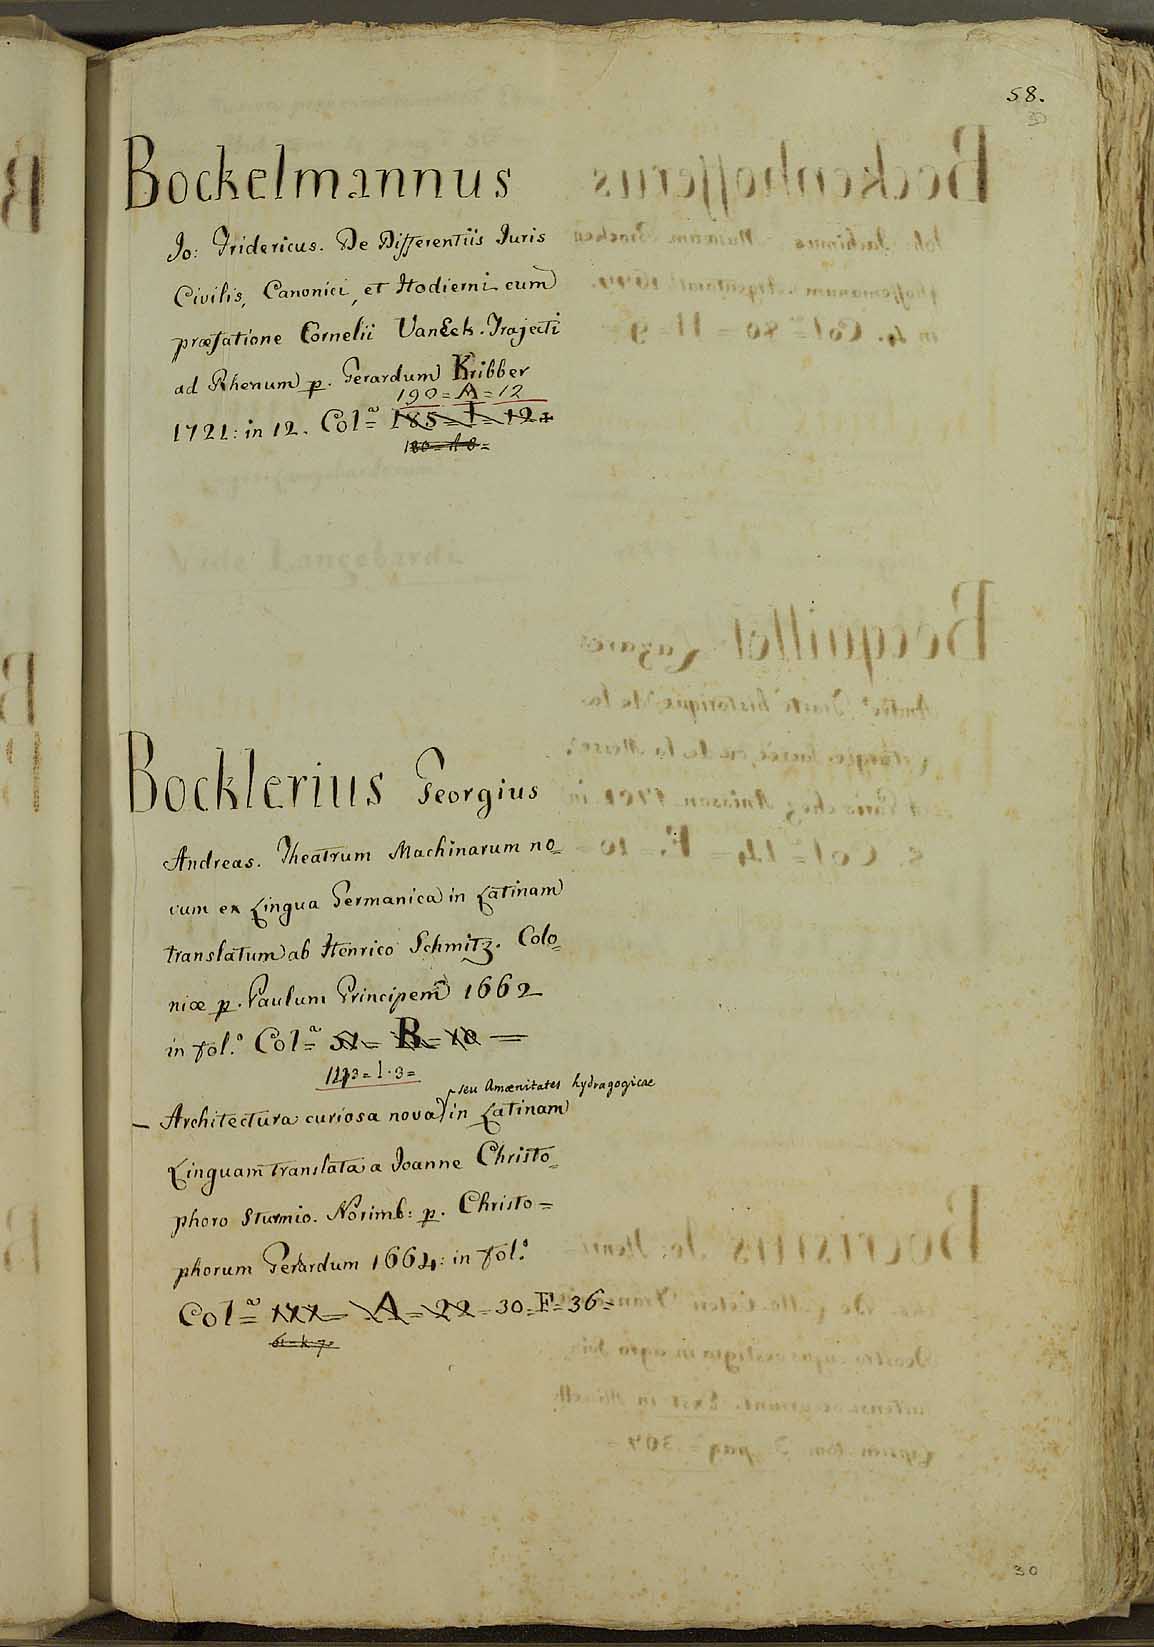 58.
Bockelmannus
Jo: Fridericus. De Differentiis Juris
Civilis, Canonici, et Hodierni cum
præfatione Cornelii VanEck. Trajecti
ad Rhenum p. Gerardum Kribber
190=A=12
1721: in 12. Colª= 185=I=12
180=A-8=
Bocklerius Georgius
Andreas. Theatrum Machinarum no=
vum ex Lingua Germanica in Latinam
translatum ab Henrico Schmitz. Colo=
niæ p. Paulum Principem 1662
in fol.º Colª= 51= B=10=
=1.3=
seu Amænitates hydragogicae
— Architectura curiosa nova in Latinam
Linguam translata a Joanne Christo=
phoro Sturmio. Norimb: p. Christo=
phorum Gerardum 1664: in fol.º
Colª= 177= A=22=30=F=36=
30